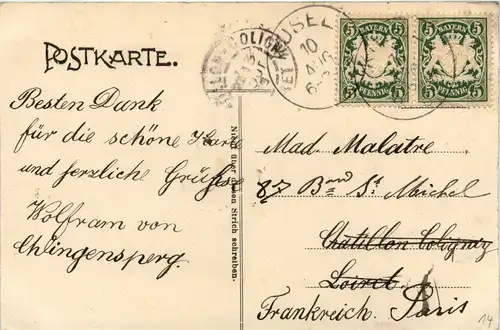 POSTKARTE.
Besten Dank
für die schöne Karte
und herzliche Grüße
Wolfram von
Chlingensperg.
Nicht über diesen Strich schreiben.
COLIGNY
10
AUG
6-
5 BAYERN 5
5 PFENNIG 5
5 BAYERN 5
5 PFENNIG 5
Mad. Malatre
87 Brd St. Michel
Chatillon Coligny
Loiret.
Frankreich. Paris
14